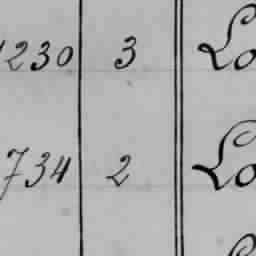 1230 3 Lo
734 2 Lo